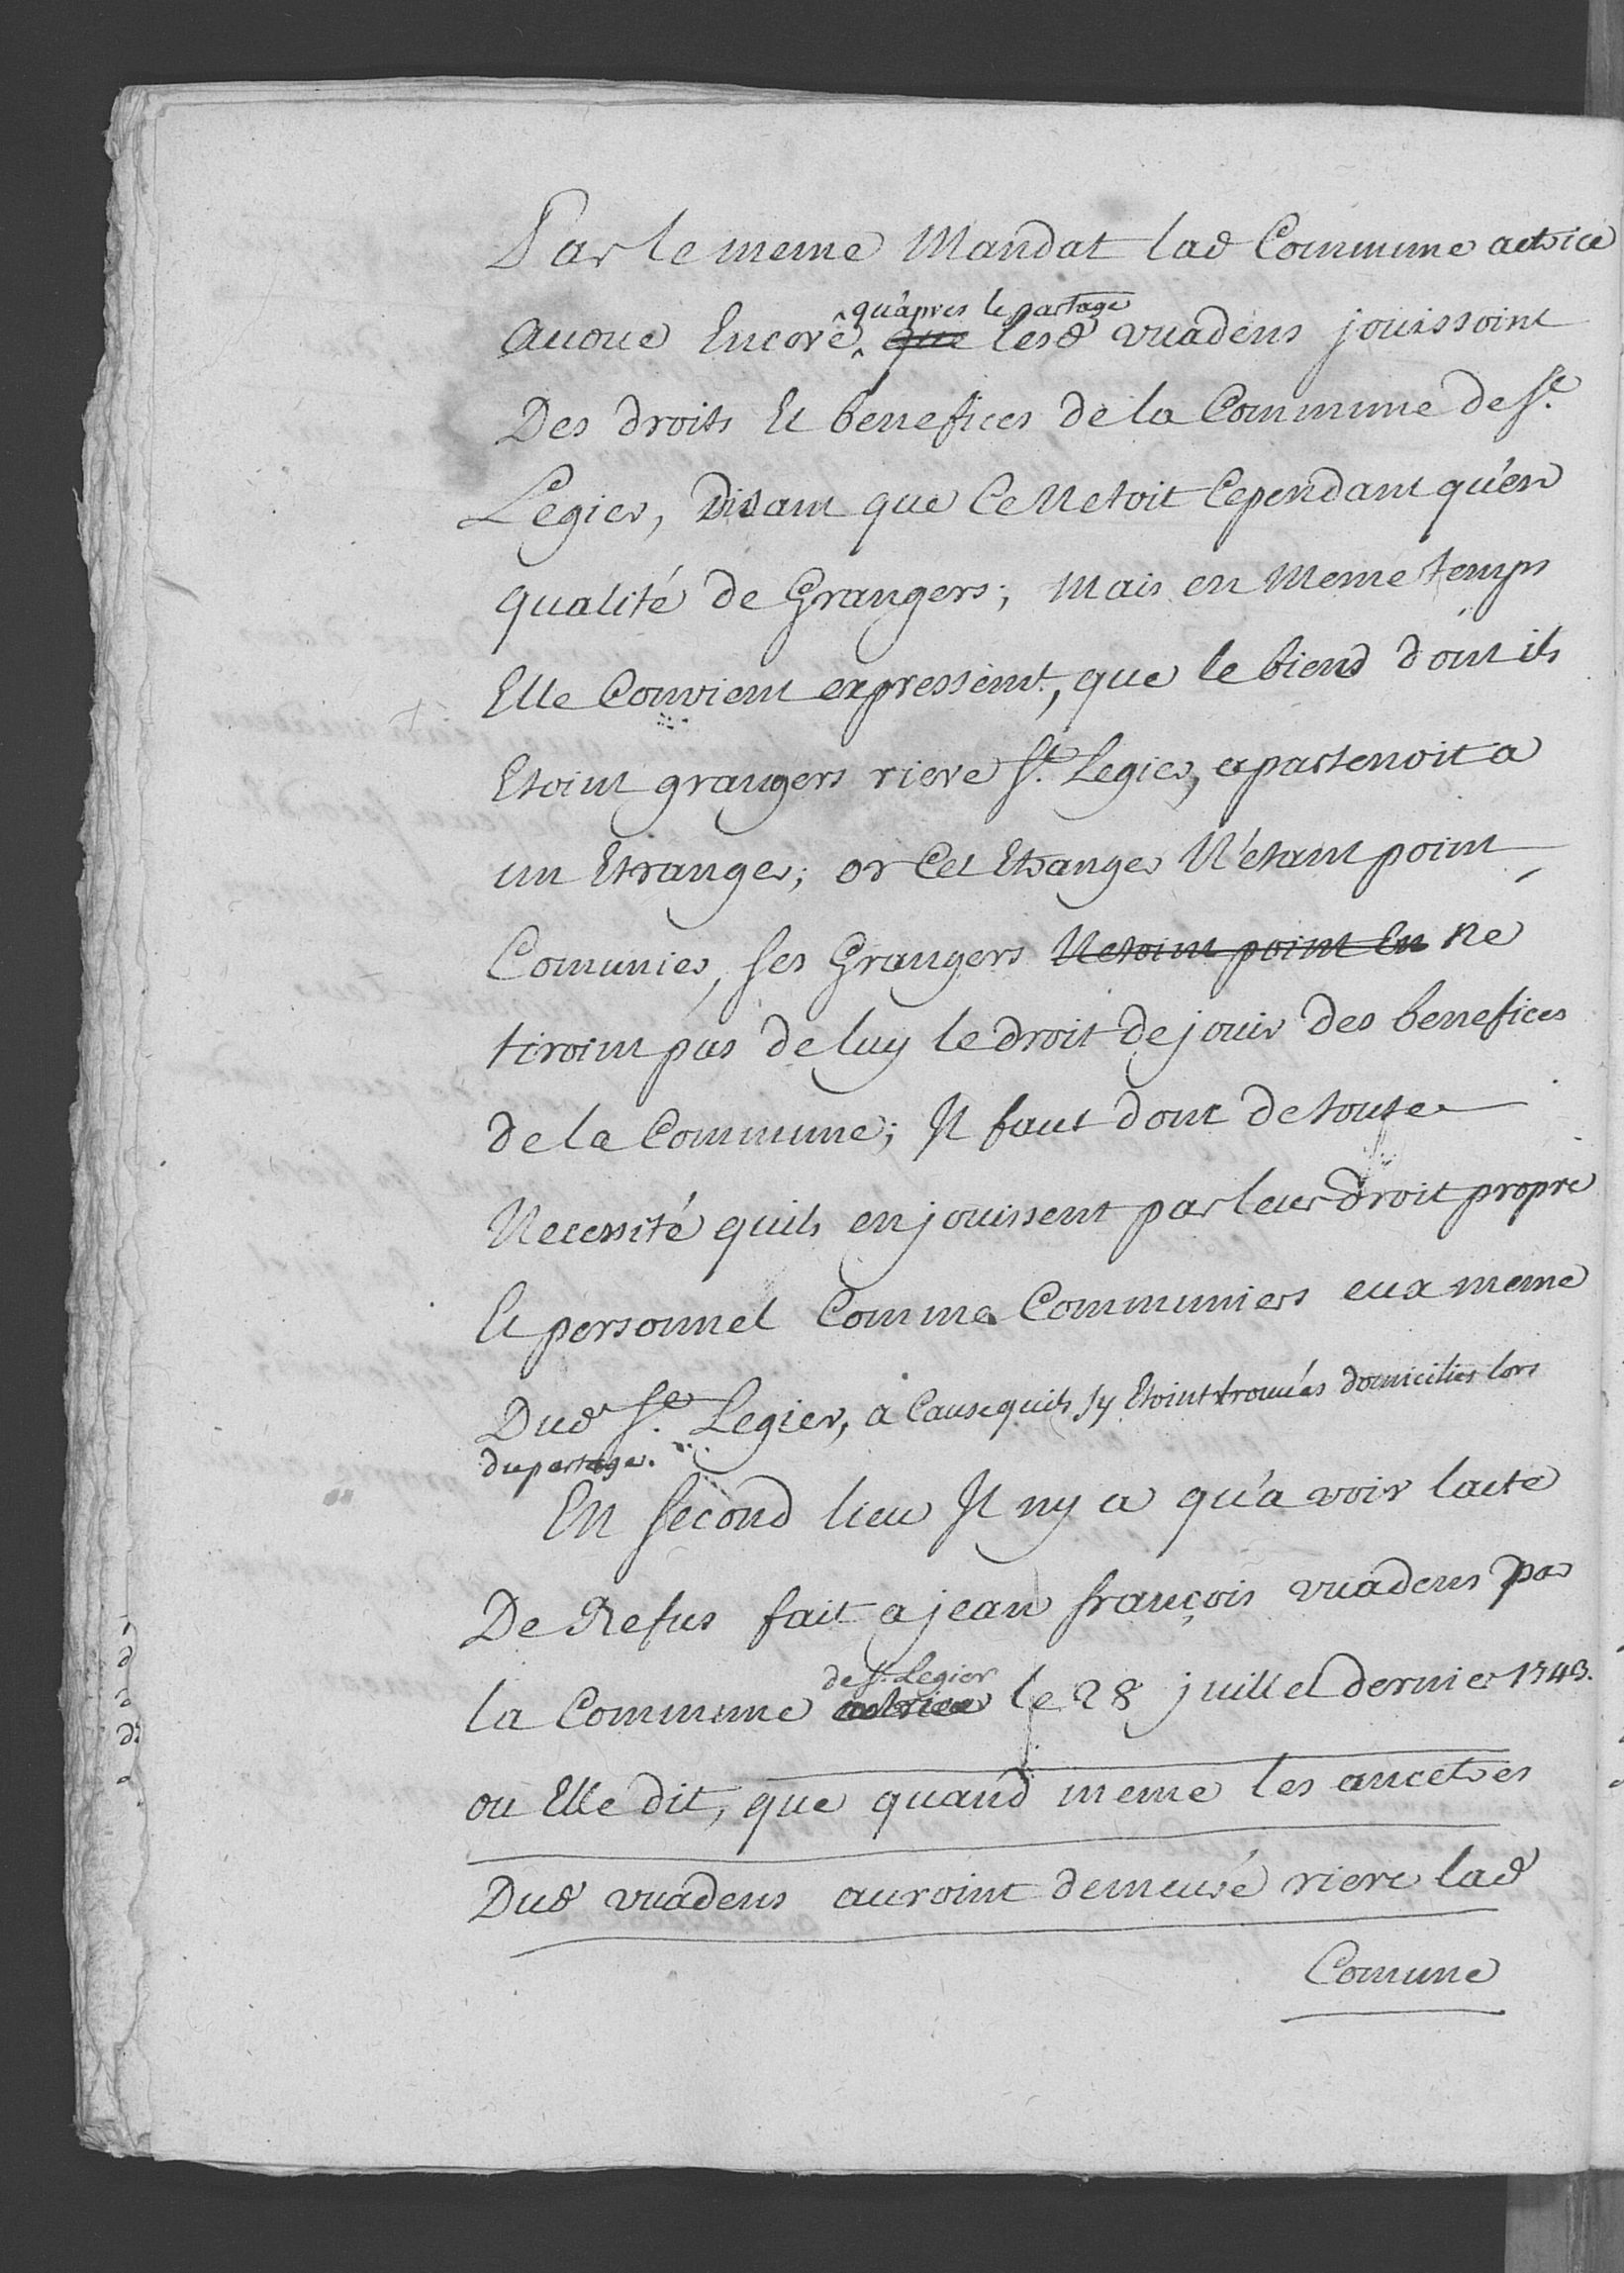 Par le meme Mandat lad Commune actrice
qu'apres le partage
avoue Encore que lesd vuadens jouissoint
Des droits Et benefices de la Commune de St.
Legier, Disant que Ce Netoit Cependant qu'en
qualité de Grangers; Mais en Meme temps
Elle Convient expressemt., que le biend dont ils
Etoint grangers riere St. Legier, apartenoit a
un Etranger; or Cet Etranger N'étant point
Comunier, ses Grangers Netoint point En ne
tiroint pas de luy le droit de jouir des benefices
de la Commune; Il faut donc de toute
Necessité quils en jouissent par leur droit propre
Et personnel Comme Communiers eux meme
Dud St. Legier, a Cause quils sy Etoint trouvés domiciliés lors
du partage.
En second lieu Il ny a qu'a voir lacte
De Refus fait a jean françois vuadens par
de St. Legier
la Commune actrice le 28 juillet dernier 1743.
ou Elle dit, que quand meme les ancetres
Dud vuadens auroint demeuré riere lad
Comune